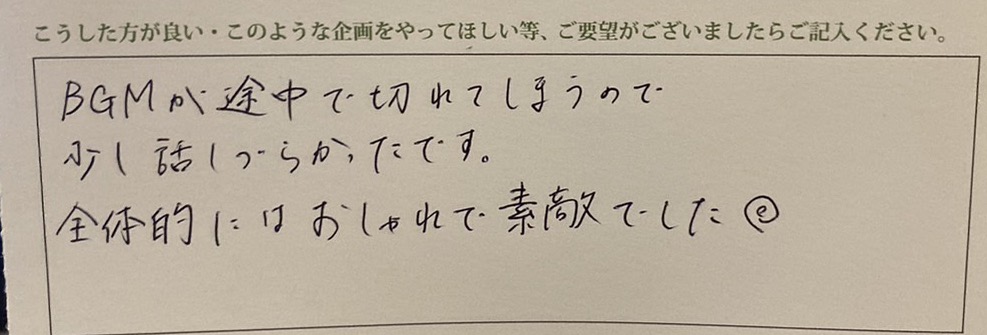 こうした方が良い・このような企画をやってほしい等、ご要望がございましたらご記入ください。
BGMが途中で切れてしまうので
少し話しづらかったです。
全体的にはおしゃれで素敵でした